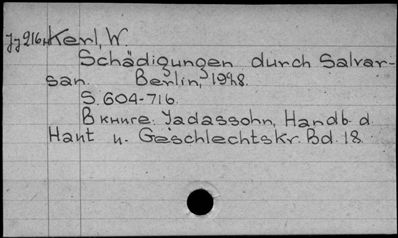 Jj216 Kerl, W.
Schädigungen durch Salvar-
san. Berlin, 1928.
S. 604-716.
В книге: Jadassohn, Handb. d.
Haut u. Geschlechtskr. Bd. 18.